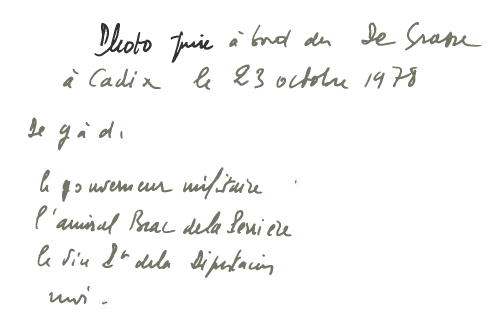 Photo prise à bord du De Grasse
à Cadix le 23 octobre 1978
De g à d.
le gouverneur militaire
l'amiral Brac de la Perrière
le Vice Pdt de la Diputacion
moi.